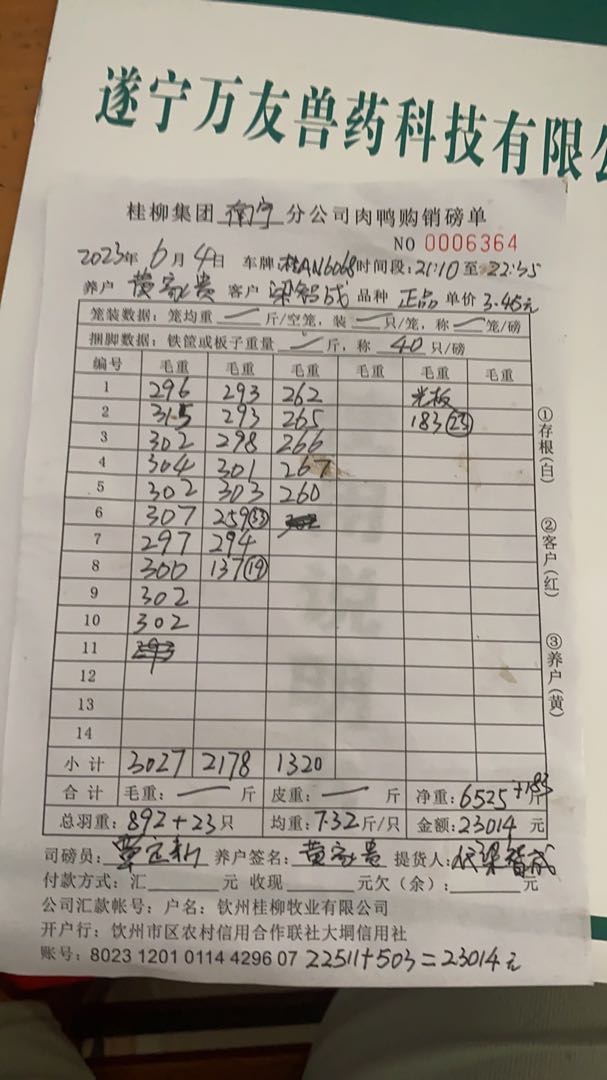 遂宁万友兽药科技有限公
桂柳集团 南宁 分公司肉鸭购销磅单
NO 0006364
2023年 6月 4日 车牌 桂AN6068 时间段: 21:10 至 22:35
养户 黄家贵 客户 梁智成 品种 正品 单价 3.45元
笼装数据: 笼均重 — 斤/空笼, 装 — 只/笼, 称 — 笼/磅
捆脚数据: 铁筐或板子重量 — 斤, 称 40 只/磅
编号 毛重 毛重 毛重 毛重 毛重 毛重
1 296 293 262 光板
2 315 293 265 183(23)
3 302 298 266
4 304 301 267
5 302 303 260
6 307 259(33)
7 297 294
8 300 137(19)
9 302
10 302
11
12
13
14
小计 3027 2178 1320
合计 毛重: — 斤 皮重: — 斤 净重: 6525+183 斤
总羽重: 892+23 只 均重: 7.32 斤/只 金额: 23014 元
司磅员: 养户签名: 黄家贵 提货人: 梁智成
付款方式: 汇 元 收现 元欠(余): 元
公司汇款帐号: 户名: 钦州桂柳牧业有限公司
开户行: 钦州市区农村信用合作联社大垌信用社
账号: 8023 1201 0114 4296 07 22511+503=23014元
①存根(白)
②客户(红)
③养户(黄)